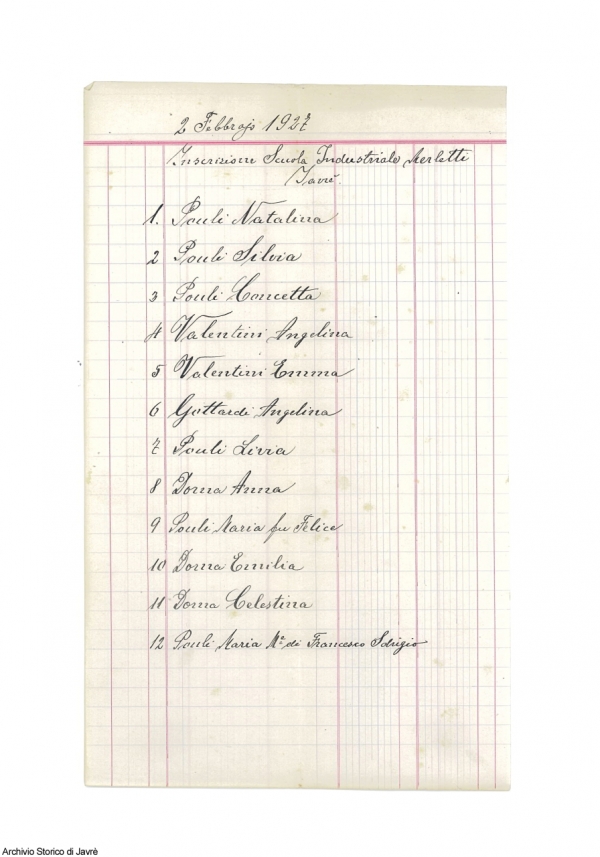 2 Febbrajo 1927
Inscrizione Scuola Industriale Merletti
Javrè.
1. Pouli Natalina
2 Pouli Silvia
3 Pouli Concetta
4 Valentini Angelina
5 Valentini Emma
6 Gottardi Angelina
7 Pouli Livia
8 Dorna Anna
9 Pouli Maria fu Felice
10 Dorna Emilia
11 Dorna Celestina
12 Pouli Maria Ma di Francesco
Archivio Storico di Javrè